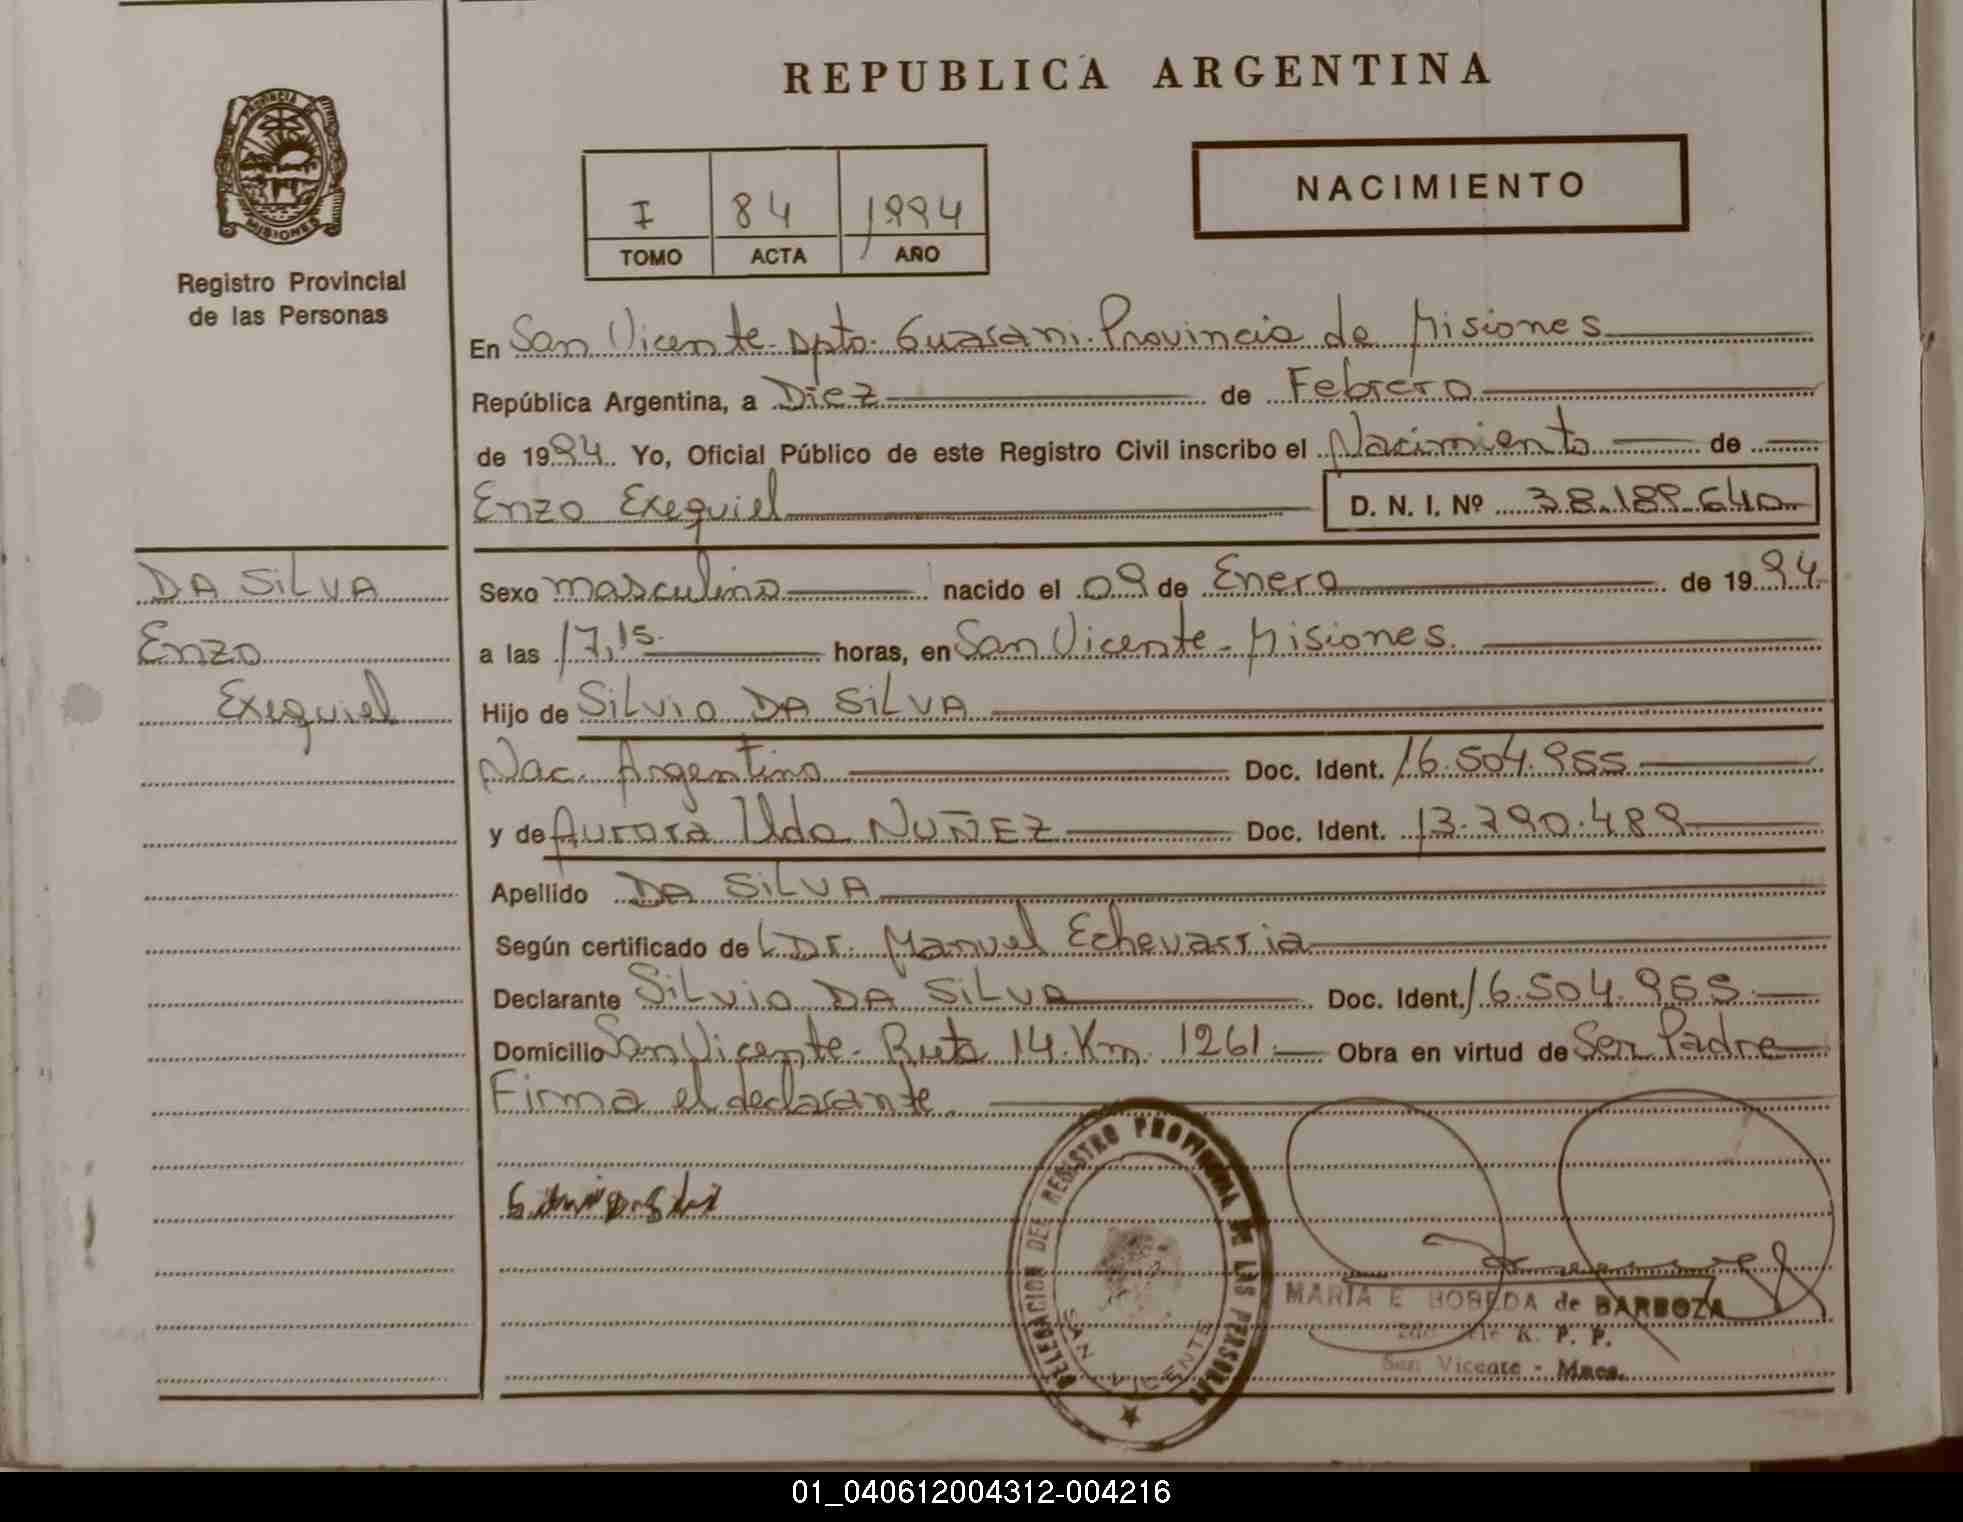 REPUBLICA ARGENTINA
PROVINCIA DE
MISIONES
Registro Provincial
de las Personas
I 84 1994
TOMO ACTA AÑO
NACIMIENTO
En San Vicente - Dpto. Guarani. Provincia de Misiones
República Argentina, a Diez de Febrero
de 1994. Yo, Oficial Público de este Registro Civil inscribo el Nacimiento de
Enzo Exequiel D. N. I. Nº 38.189.640
DA SILVA
Enzo
Exequiel
Sexo masculino nacido el 09 de Enero de 1994
a las 17,15. horas, en San Vicente - Misiones.
Hijo de Silvio DA SILVA
Nac. Argentino Doc. Ident. 16.504.965
y de Aurora Ilda NUÑEZ Doc. Ident. 13.790.489
Apellido DA SILVA
Según certificado de Dr. Manuel Echevarria
Declarante Silvio DA SILVA Doc. Ident. 16.504.965
Domicilio San Vicente - Ruta 14. Km. 1261. Obra en virtud de Ser Padre
Firma el declarante.
DELEGACION DEL REGISTRO PROVINCIAL DE LAS PERSONAS
SAN VICENTE
MARIA E BOBEDA de BARBOZA
R. P. P.
San Vicente - Mnes.
01_040612004312-004216